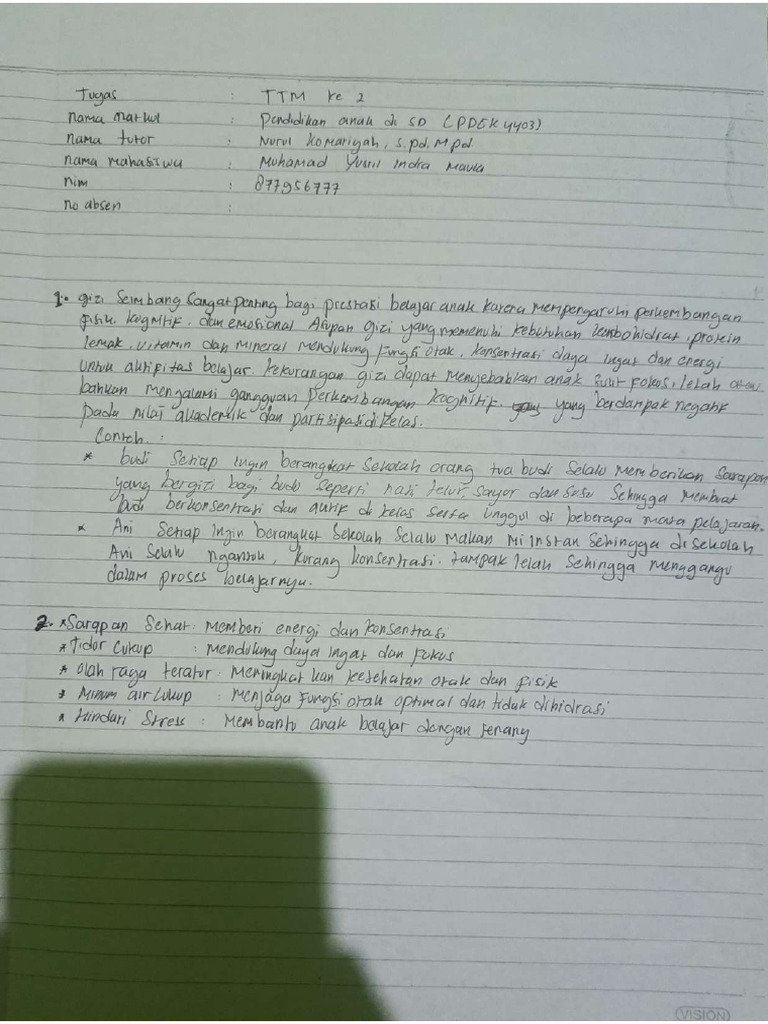 Tugas : TTM ke 2
nama matkul : Pendidikan anak di SD (PDGK4403)
nama tutor : Nurul Komariyah, S.pd, M.pd
nama mahasiswa : Muhamad Yusril Indra Maula
nim : 877956777
no absen :
1. gizi Seimbang Sangat penting bagi prestasi belajar anak karena mempengaruhi perkembangan
fisik kognitif, dan emosional Asupan gizi yang memenuhi kebutuhan karbohidrat, protein
lemak, vitamin dan mineral mendukung fungsi otak, konsentrasi daya ingat dan energi
untuk aktifitas belajar. kekurangan gizi dapat menyebabkan anak sulit fokus, lelah atau
bahkan mengalami gangguan perkembangan kognitif. yang berdampak negatif
pada nilai akademik dan partisipasi di kelas.
Contoh :
* budi setiap ingin berangkat sekolah orang tua budi selalu memberikan sarapan
yang bergizi bagi budi seperti nasi telur, sayur dan susu sehingga membuat
budi berkonsentrasi dan aktif di kelas serta unggul di beberapa mata pelajaran.
* Ani setiap ingin berangkat sekolah selalu makan mi instan sehingga di sekolah
Ani selalu ngantuk, kurang konsentrasi. tampak lelah sehingga menggangu
dalam proses belajarnya.
2. * Sarapan Sehat : memberi energi dan konsentrasi
* Tidur Cukup : mendukung daya ingat dan fokus
* Olah raga teratur : meningkat kan kesehatan otak dan fisik
* Minum air cukup : menjaga fungsi otak optimal dan tidak dihidrasi
* Hindari Stress : Membantu anak belajar dengan tenang
VISION